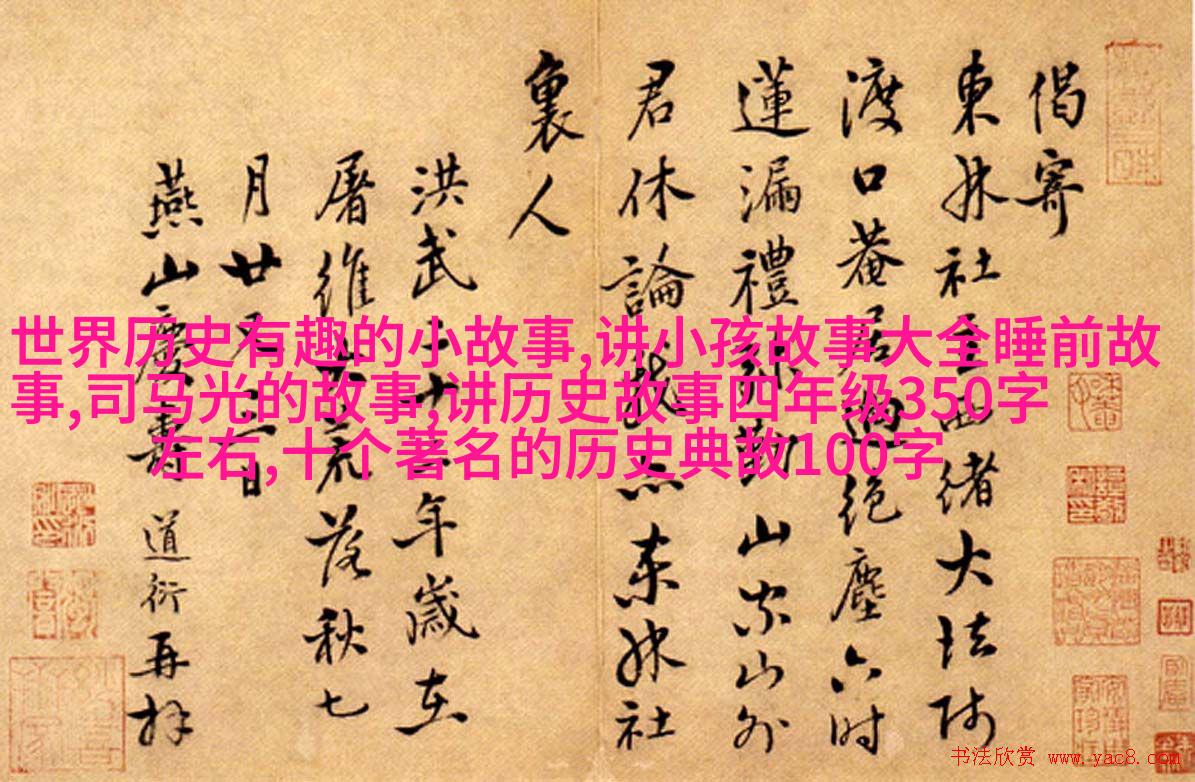 偈寄
東林社主西緒大法師
渡口菴居絕塵六時
蓮漏禮勤山家山外
君休論我亦東林社
裏人
洪武二十二年歲在
屠維大荒落秋七
月廿又二日
燕山慶壽道衍再拜
世界历史有趣的小故事,讲小孩故事大全睡前故
事,司马光的故事,讲历史故事四年级350字
左右,十个著名的历史典故100字
书法欣赏 www.yac8.com